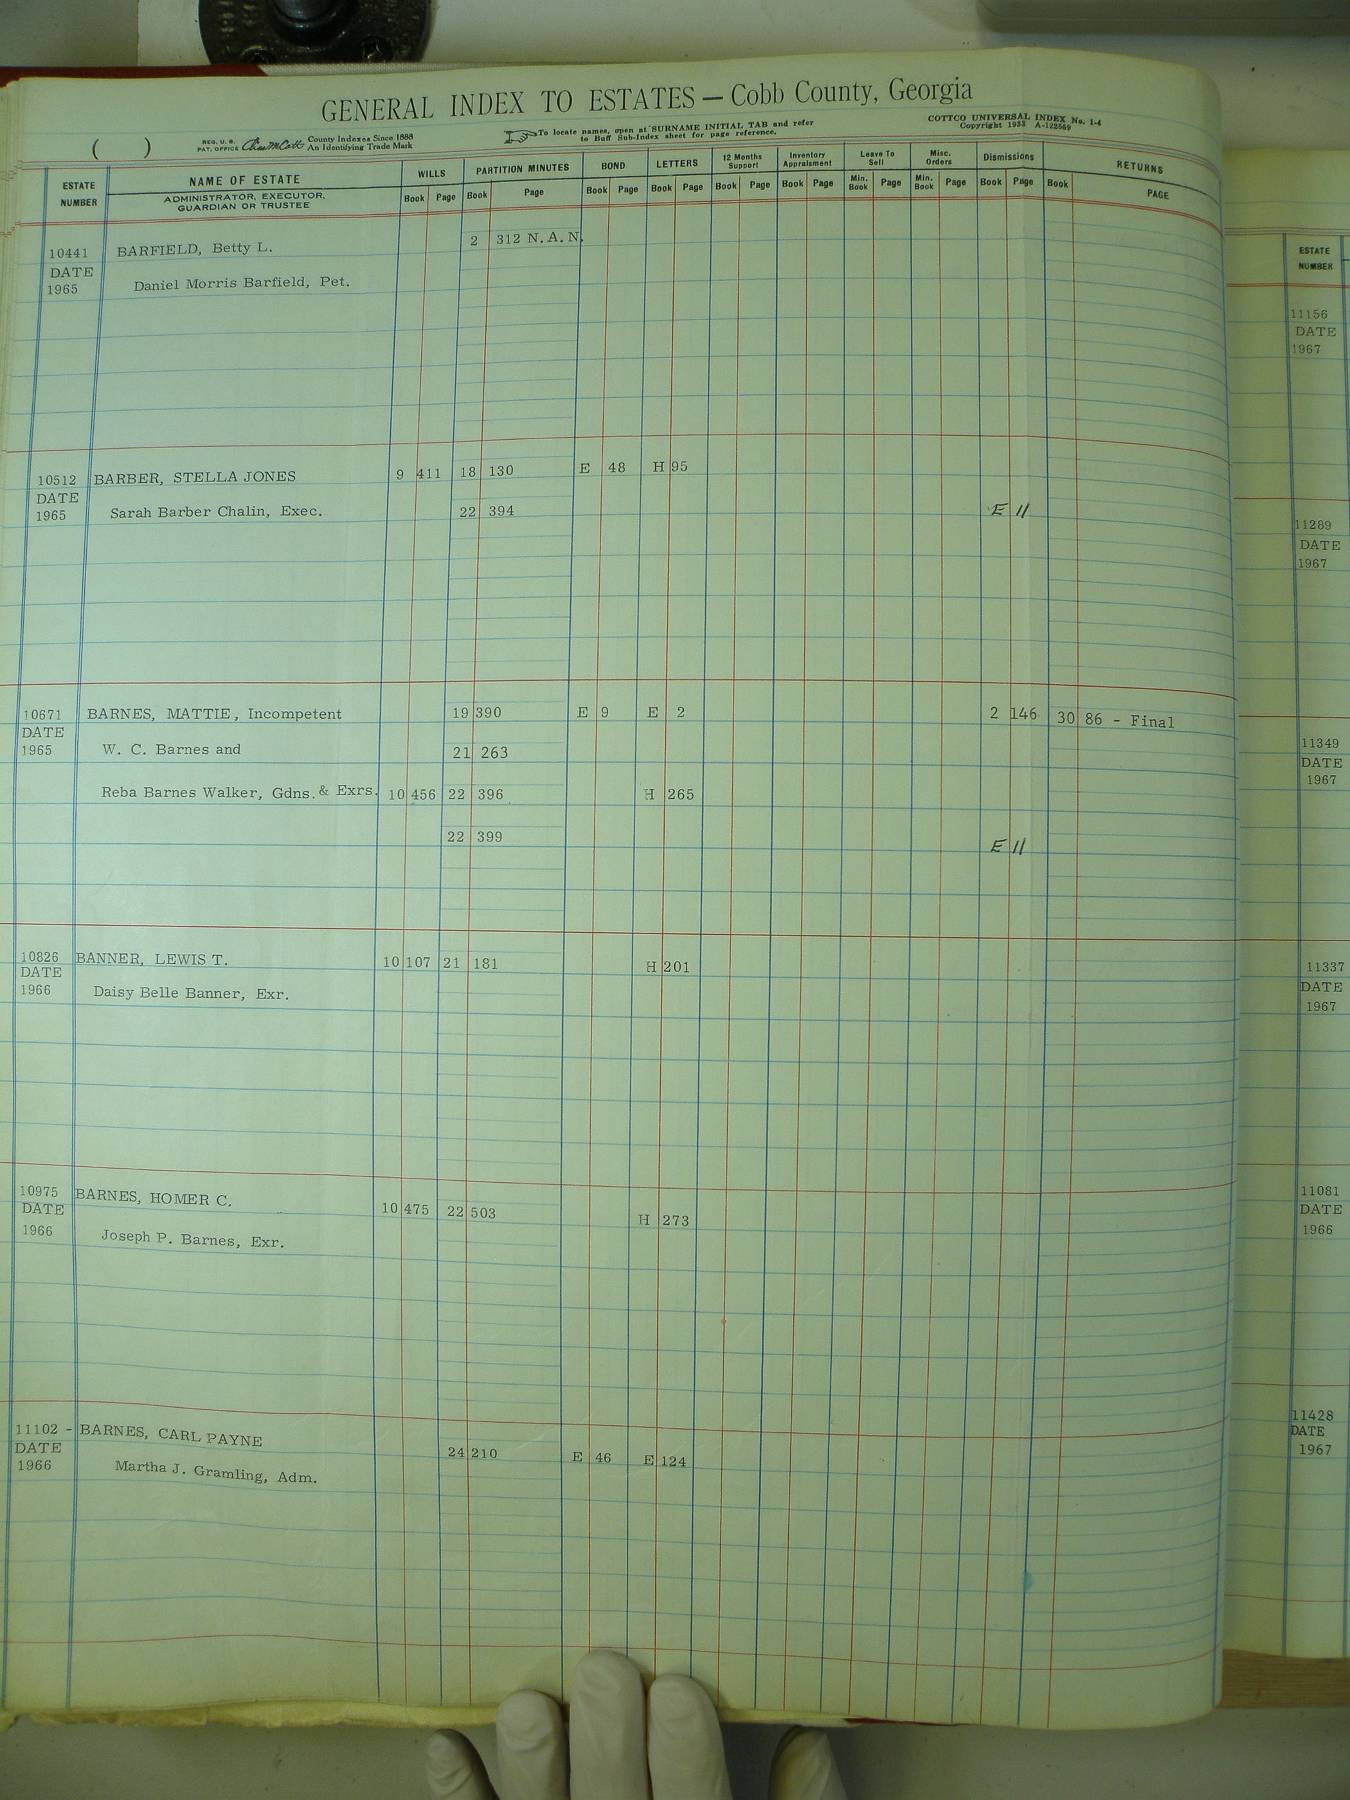 GENERAL INDEX TO ESTATES — Cobb County, Georgia
( )
REG. U. S. PAT. OFFICE County Indexes Since 1888 An Identifying Trade Mark
To locate names, open at SURNAME INITIAL TAB and refer
to Buff Sub-Index sheet for page reference.
COTTCO UNIVERSAL INDEX No. 1-4
Copyright 1933 A-122569
ESTATE NUMBER NAME OF ESTATE WILLS PARTITION MINUTES BOND LETTERS 12 Months Support Inventory Appraisment Leave To Sell Misc. Orders Dismissions RETURNS
ADMINISTRATOR, EXECUTOR, GUARDIAN OR TRUSTEE Book Page Book Page Book Page Book Page Book Page Book Page Min. Book Page Min. Book Page Book Page Book PAGE
10441 BARFIELD, Betty L. 2 312 N. A. N.
DATE
1965 Daniel Morris Barfield, Pet.
10512 BARBER, STELLA JONES 9 411 18 130 E 48 H 95
DATE
1965 Sarah Barber Chalin, Exec. 22 394 E 11
10671 BARNES, MATTIE, Incompetent 19 390 E 9 E 2 2 146 30 86 - Final
DATE
1965 W. C. Barnes and 21 263
Reba Barnes Walker, Gdns. & Exrs. 10 456 22 396 H 265
22 399 E 11
10826 BANNER, LEWIS T. 10 107 21 181 H 201
DATE
1966 Daisy Belle Banner, Exr.
10975 BARNES, HOMER C. 10 475 22 503 H 273
DATE
1966 Joseph P. Barnes, Exr.
11102 - BARNES, CARL PAYNE 24 210 E 46 E 124
DATE
1966 Martha J. Gramling, Adm.
ESTATE
NUMBER
11156
DATE
1967
11289
DATE
1967
11349
DATE
1967
11337
DATE
1967
11081
DATE
1966
11428
DATE
1967